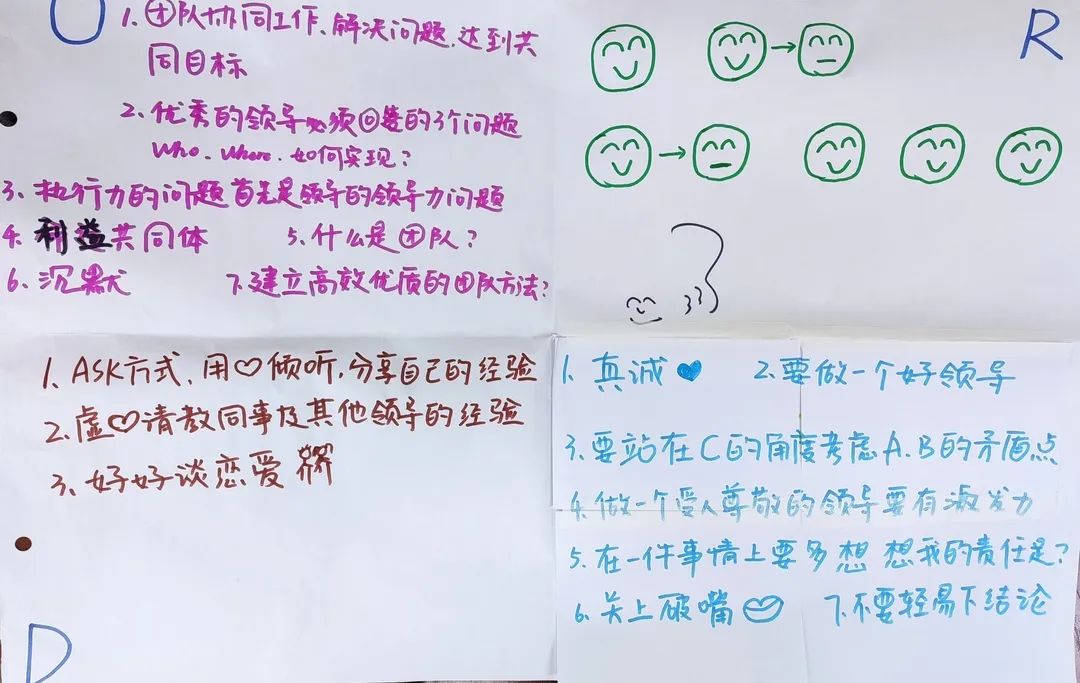 O
1. 团队协同工作、解决问题、达到共
同目标
2. 优秀的领导必须回答的3个问题
Who、Where、如何实现？
3、执行力的问题首先是领导的领导力问题
4. 利益共同体 5. 什么是团队？
6、沉默 7. 建立高效优质的团队方法？
R
1、ASK方式、用♡倾听、分享自己的经验
2. 虚♡请教同事及其他领导的经验
3、好好谈恋爱
D
1. 真诚♥ 2. 要做一个好领导
3. 要站在C的角度考虑A.B的矛盾点
4. 做一个受人尊敬的领导要有激发力
5. 在一件事情上要多想 想我的责任是？
6. 关上破嘴 7. 不要轻易下结论